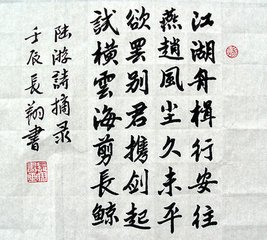 江湖舟楫行安往
燕趙風尘久未平
欲罢别君携剑起
試橫雲海剪長鲸
陸游詩摘录
壬辰長翔書